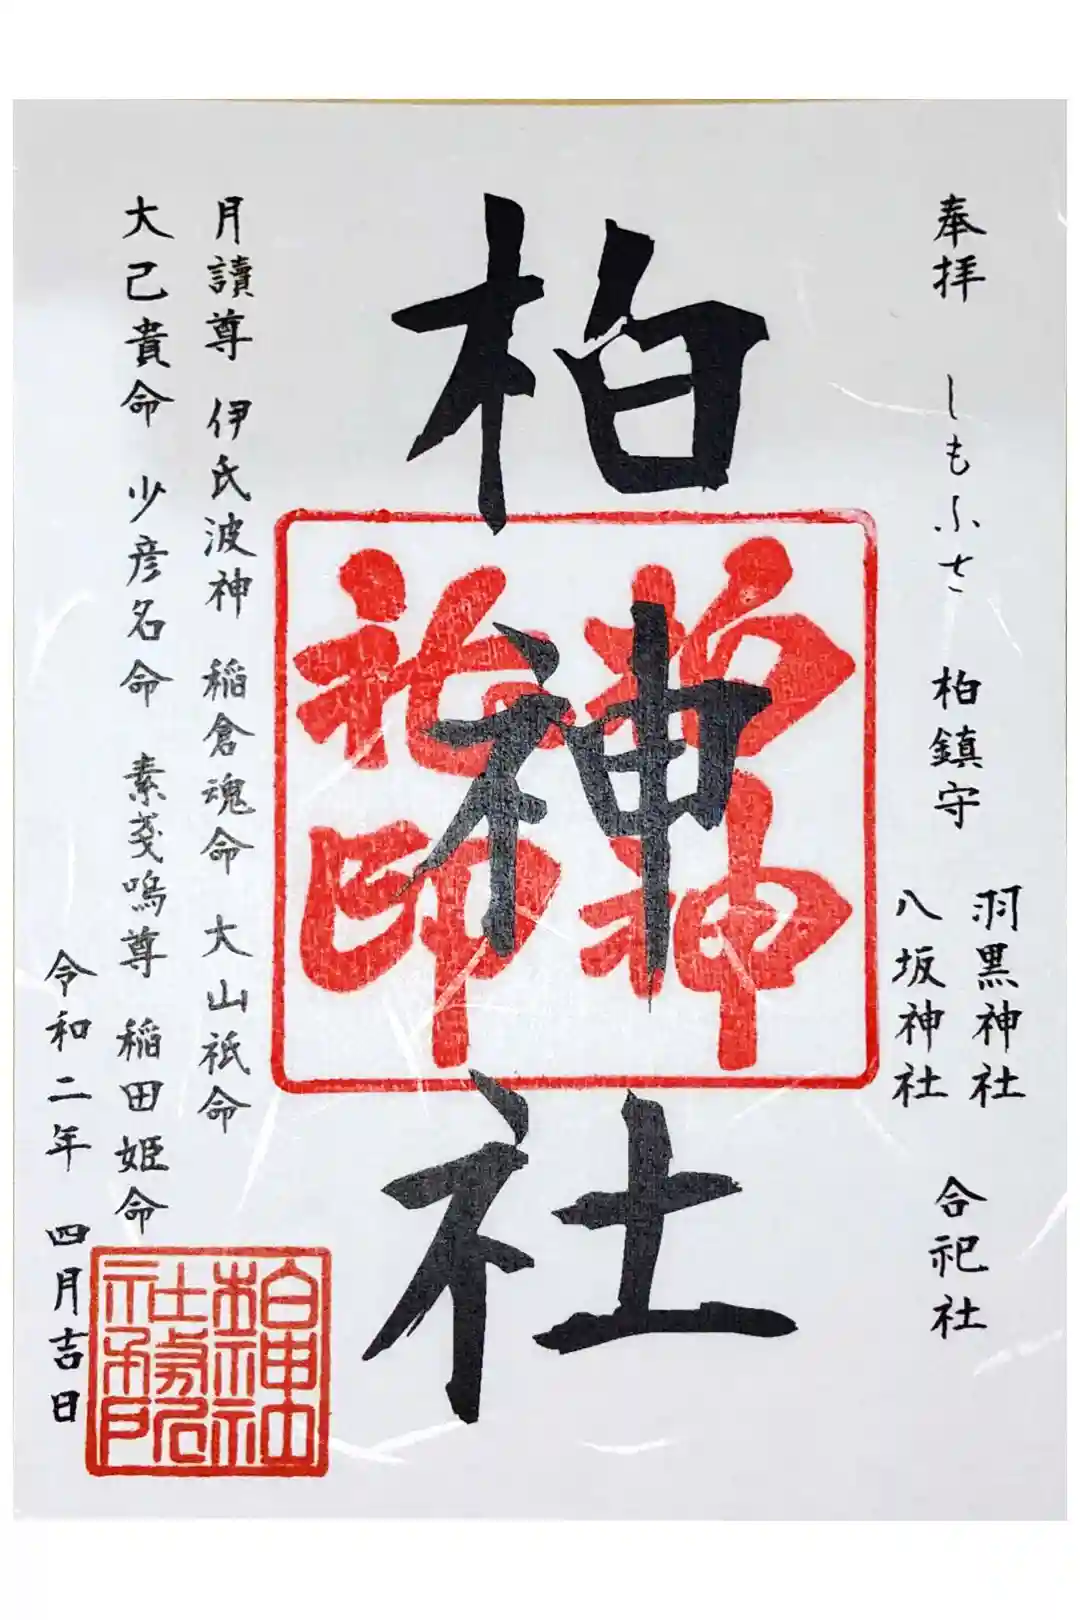 奉拝 しもふさ 柏鎮守
羽黒神社
八坂神社
合祀社
柏神社
柏神社印
月讀尊 伊氐波神 稲倉魂命 大山祇命
大己貴命 少彦名命 素戔嗚尊 稲田姫命
令和二年 四月吉日
柏神社社務所